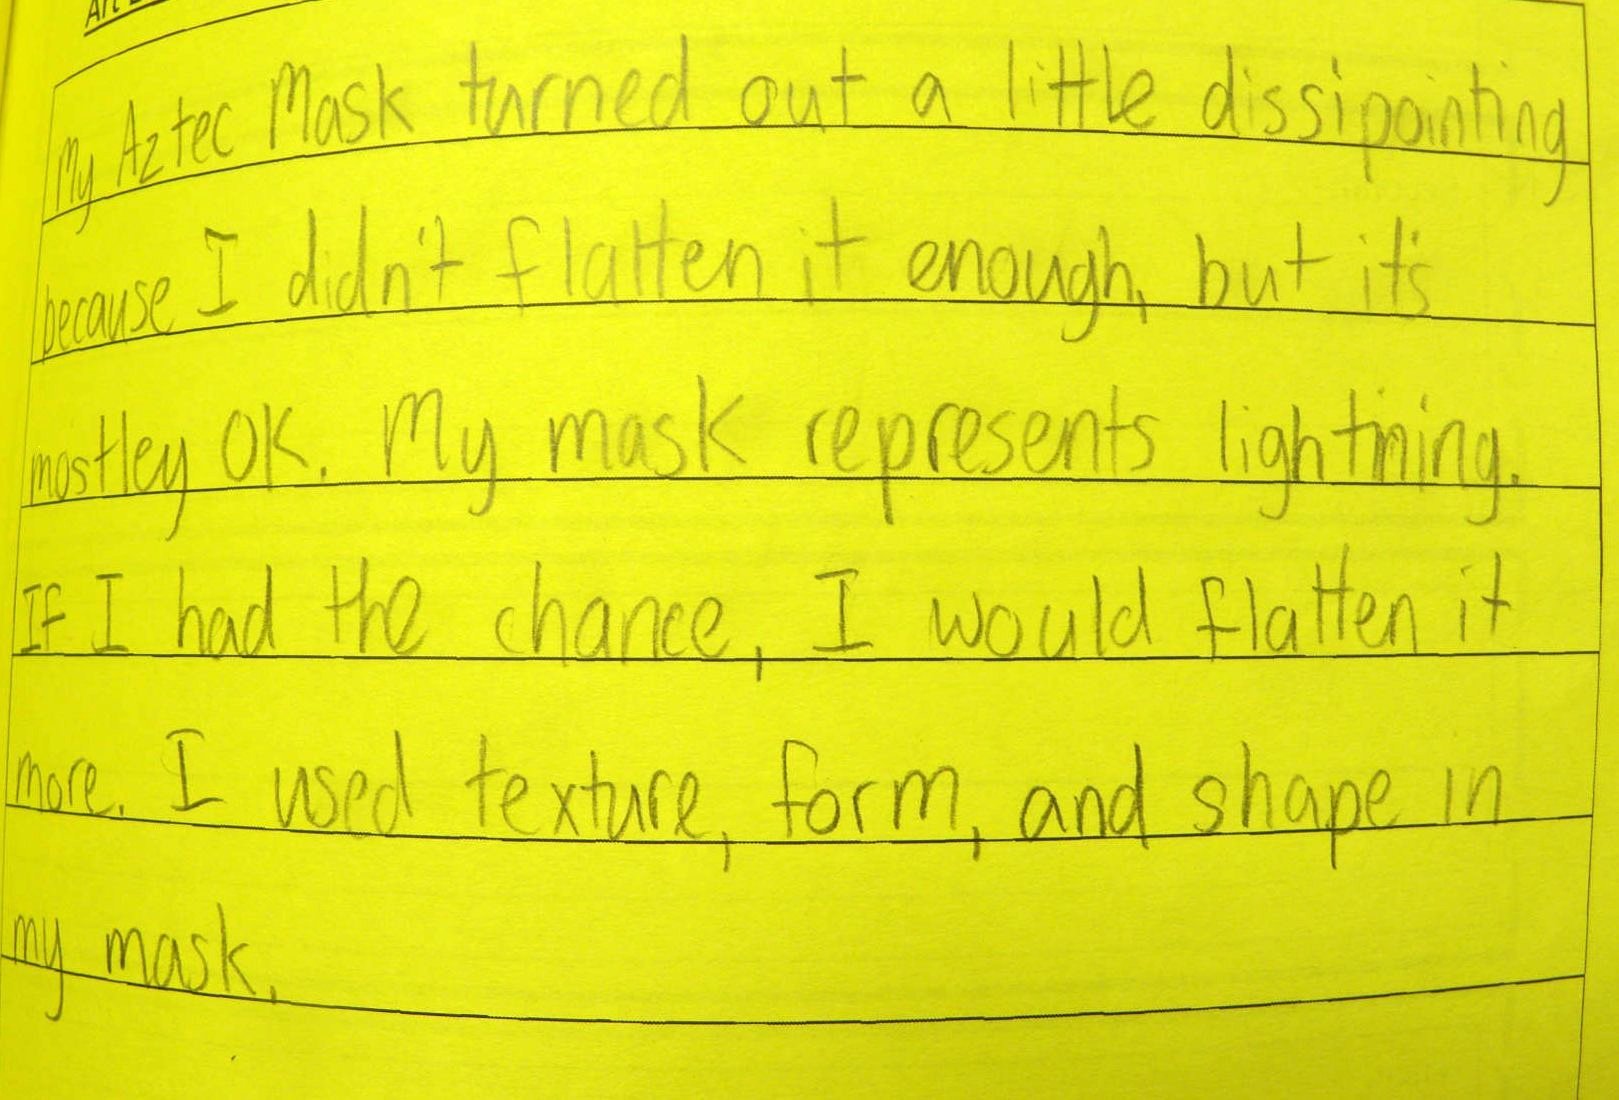 My Aztec Mask turned out a little dissipointing
because I didn't flatten it enough, but it's
mostley OK. My mask represents lightning.
If I had the chance, I would flatten it
more. I used texture, form, and shape in
my mask.